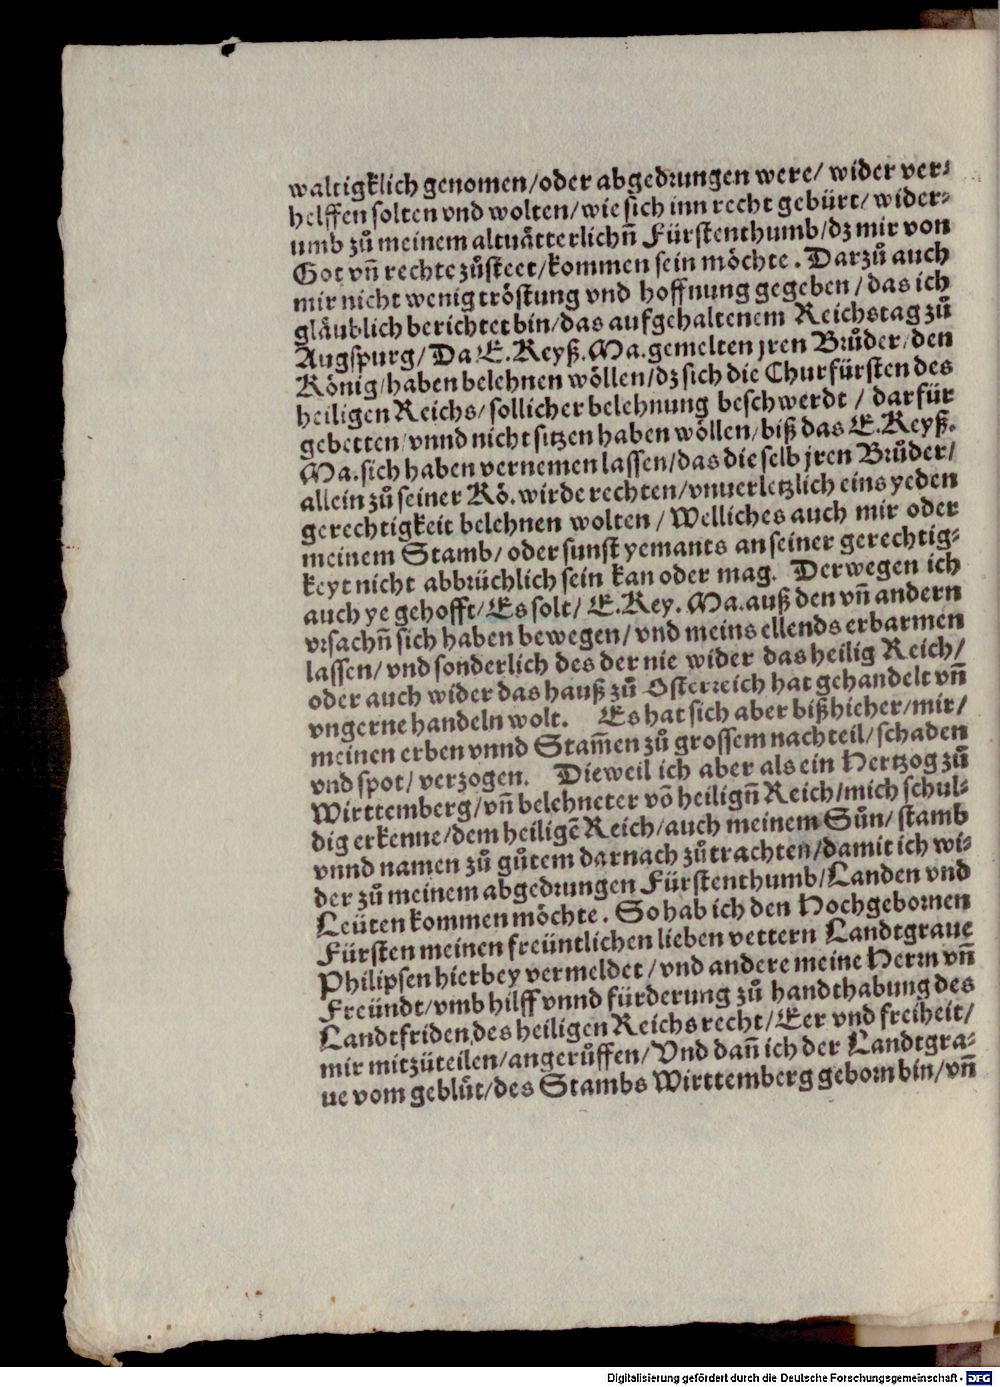 waltigklich genomen/oder abgedrungen were/ wider ver-
helffen solten vnd wolten/ wie sich inn recht gebürt/ wider-
umb zů meinem altuätterlichñ Fürstenthumb/dz mir von
Got vñ rechte zůsteet/kommen sein möchte. Darzů auch
mir nicht wenig tröstung vnd hoffnung gegeben/ das ich
gläublich berichtet bin/das auf gehaltenem Reichstag zů
Augspurg/ Da E. Keyß. Ma. gemelten jren Brůder/den
König/haben belehnen wöllen/dz sich die Churfürsten des
heiligen Reichs/ sollicher belehnung beschwerdt/ darfür
gebetten/vnnd nicht sitzen haben wöllen/biß das E. Keyß.
Ma. sich haben vernemen lassen/das die selb jren Brůder/
allein zů seiner Kö. wirde rechten/vnuerletzlich eins yeden
gerechtigkeit belehnen wolten/ Welliches auch mir oder
meinem Stamb/ oder sunst yemants an seiner gerechtig-
keyt nicht abbrüchlich sein kan oder mag. Derwegen ich
auch ye gehofft/ Es solt/ E. Key. Ma. auß den vñ andern
vrsachñ sich haben bewegen/ vnd meins ellends erbarmen
lassen/ vnd sonderlich des der nie wider das heilig Reich/
oder auch wider das hauß zů Osterreich hat gehandelt vñ
vngerne handeln wolt. Es hat sich aber bißhieher/mir/
meinen erben vnnd Stam̃en zů grossem nachteil/ schaden
vnd spot/ verzogen. Dieweil ich aber als ein Hertzog zů
Wirttemberg/vñ belehneter võ heiligñ Reich/mich schul-
dig erkenne/dem heiligẽ Reich/auch meinem Sůn/ stamb
vnnd namen zů gůtem darnach zůtrachten/damit ich wi-
der zů meinem abgedrungen Fürstenthumb/Landen vnd
Leüten kommen möchte. So hab ich den Hochgebornen
Fürsten meinen freüntlichen lieben vettern Landtgraue
Philipsen hierbey vermeldet/ vnd andere meine Herrn vñ
Freündt/vmb hilff vnnd fürderung zů handthabung des
Landtfriden/des heiligen Reichs recht/ Eer vnd freiheit/
mir mitzüteilen/angerůffen/ Vnd dañ ich der Landtgra-
ue vom geblüt/des Stambs Wirttemberg geborn bin/vñ
Digitalisierung gefördert durch die Deutsche Forschungsgemeinschaft - DFG